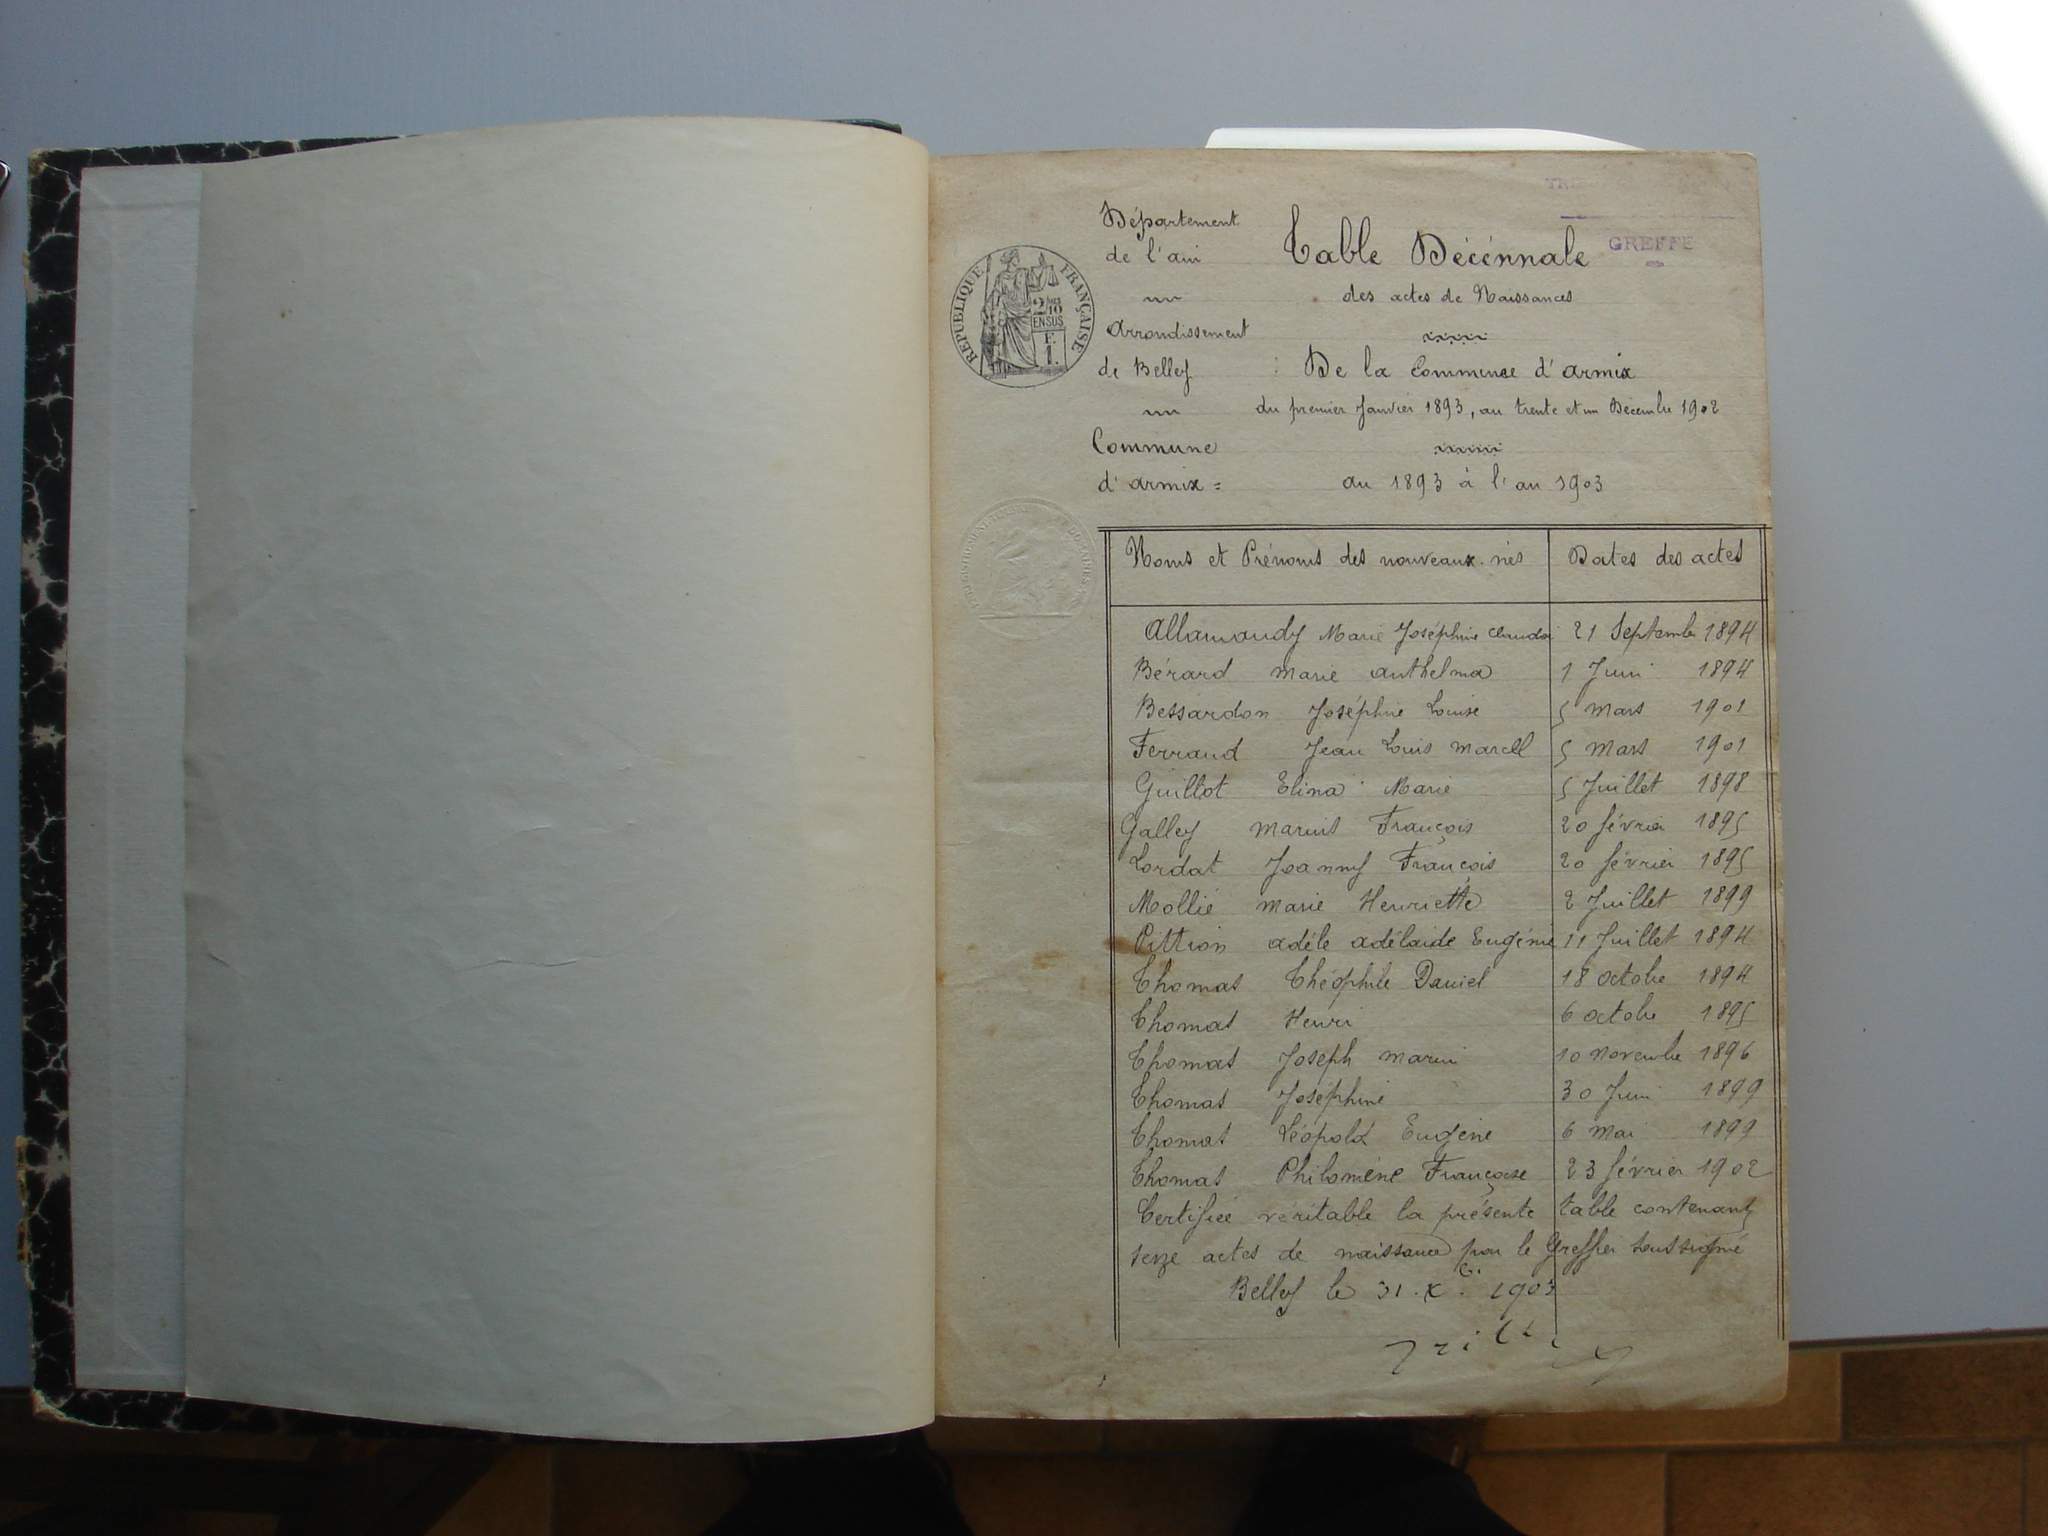 Département
de l'ain
Arrondissement
de Belley
Commune
d'armix =
RÉPUBLIQUE FRANÇAISE
2/10
EN SUS
F.
1.
GREFFE
Table Décénnale
des actes de Naissances
De la Commune d'armix
du premier Janvier 1893, au trente et un Décembre 1902
au 1893 à l'an 1903
Noms et Prénoms des nouveaux-nés Dates des actes
Allamandy Marie Joséphine Claudi 21 Septembre 1894
Bérard marie anthelma 1 Juin 1894
Bessardon Joséphine Louise 5 mars 1901
Ferraud Jean Louis marcell 5 mars 1901
Guillot Elina Marie 5 Juillet 1898
Galley marius François 20 février 1895
Lordat Joanny François 20 février 1895
Mollié marie Henriette 2 Juillet 1899
Pittion adéle adélaide Eugénie 11 Juillet 1894
Thomas Théophile Daniel 18 octobre 1894
Thomas Henri 6 octobre 1895
Thomas Joseph marin 10 novembre 1896
Thomas Joséphine 30 Juin 1899
Thomas Léopold Eugène 6 mai 1899
Thomas Philomène Françoise 23 février 1902
Certifiée véritable la présente table contenant
seize actes de naissance par le Greffier soussigné
Belley le 31 Xbre 1903